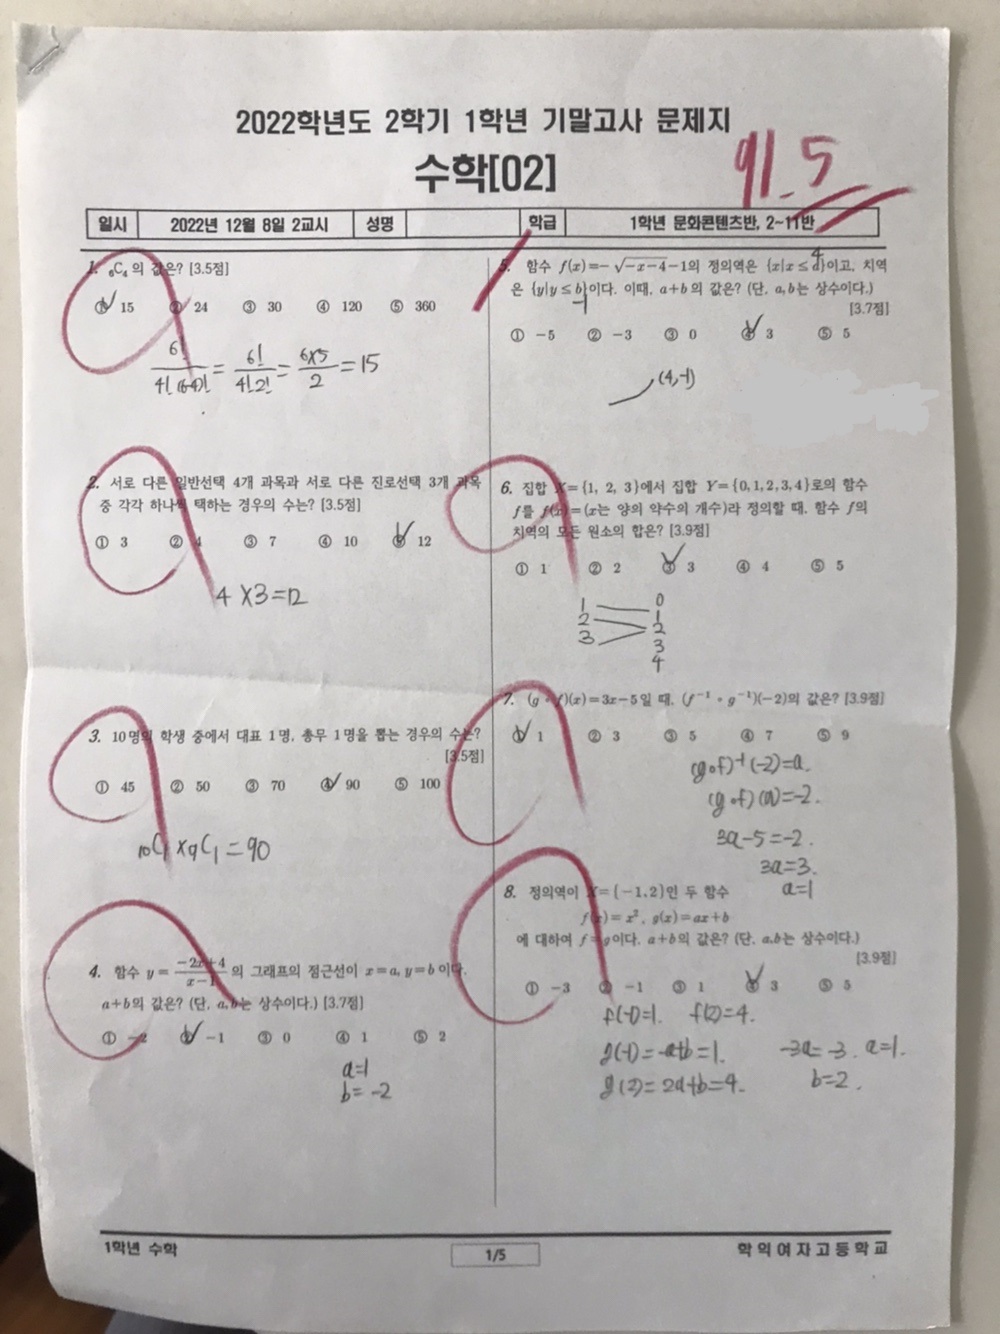 2022학년도 2학기 1학년 기말고사 문제지
수학[02]
91.5
일시 2022년 12월 8일 2교시 성명 학급 1학년 문화콘텐츠반, 2~11반
1. ₆C₄의 값은? [3.5점]
① 15 ② 24 ③ 30 ④ 120 ⑤ 360
6!/4!(6-4)! = 6!/4!2! = 6×5/2 = 15
2. 서로 다른 일반선택 4개 과목과 서로 다른 진로선택 3개 과목
중 각각 하나씩 택하는 경우의 수는? [3.5점]
① 3 ② 4 ③ 7 ④ 10 ⑤ 12
4×3=12
3. 10명의 학생 중에서 대표 1명, 총무 1명을 뽑는 경우의 수는?
[3.5점]
① 45 ② 50 ③ 70 ④ 90 ⑤ 100
₁₀C₁×₉C₁=90
4. 함수 y=(-2x+4)/(x-1)의 그래프의 점근선이 x=a, y=b이다.
a+b의 값은? (단, a,b는 상수이다.) [3.7점]
① -2 ② -1 ③ 0 ④ 1 ⑤ 2
a=1
b=-2
5. 함수 f(x)=-√(-x-4)-1의 정의역은 {x|x≤a}이고, 치역
4
은 {y|y≤b}이다. 이때, a+b의 값은? (단, a,b는 상수이다.)
-1
[3.7점]
① -5 ② -3 ③ 0 ④ 3 ⑤ 5
(4,-1)
6. 집합 X={1, 2, 3}에서 집합 Y={0,1,2,3,4}로의 함수
f를 f(x)=(x는 양의 약수의 개수)라 정의할 때, 함수 f의
치역의 모든 원소의 합은? [3.9점]
① 1 ② 2 ③ 3 ④ 4 ⑤ 5
0
1 1
2 2
3 3
4
7. (g∘f)(x)=3x-5일 때, (f⁻¹∘g⁻¹)(-2)의 값은? [3.9점]
① 1 ② 3 ③ 5 ④ 7 ⑤ 9
(g∘f)⁻¹(-2)=a.
(g∘f)(a)=-2.
3a-5=-2.
3a=3.
a=1
8. 정의역이 X={-1,2}인 두 함수
f(x)=x², g(x)=ax+b
에 대하여 f=g이다. a+b의 값은? (단, a,b는 상수이다.)
[3.9점]
① -3 ② -1 ③ 1 ④ 3 ⑤ 5
f(-1)=1. f(2)=4.
g(-1)=-a+b=1. -3a=-3. a=1.
g(2)=2a+b=4. b=2.
1학년 수학 1/5 학익여자고등학교